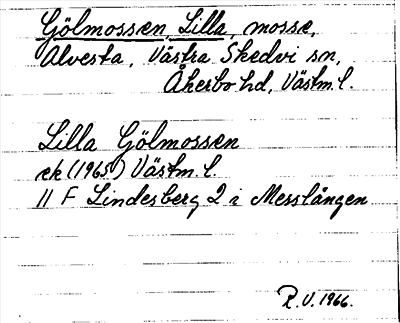 Gölmossen, Lilla, mosse,
Alvesta, Västra Skedvi sn,
Åkerbo hd, Västm. l.
Lilla Gölmossen
ek (1965) Västm. l.
11 F Lindesberg 2 i Messlången
R.V. 1966.